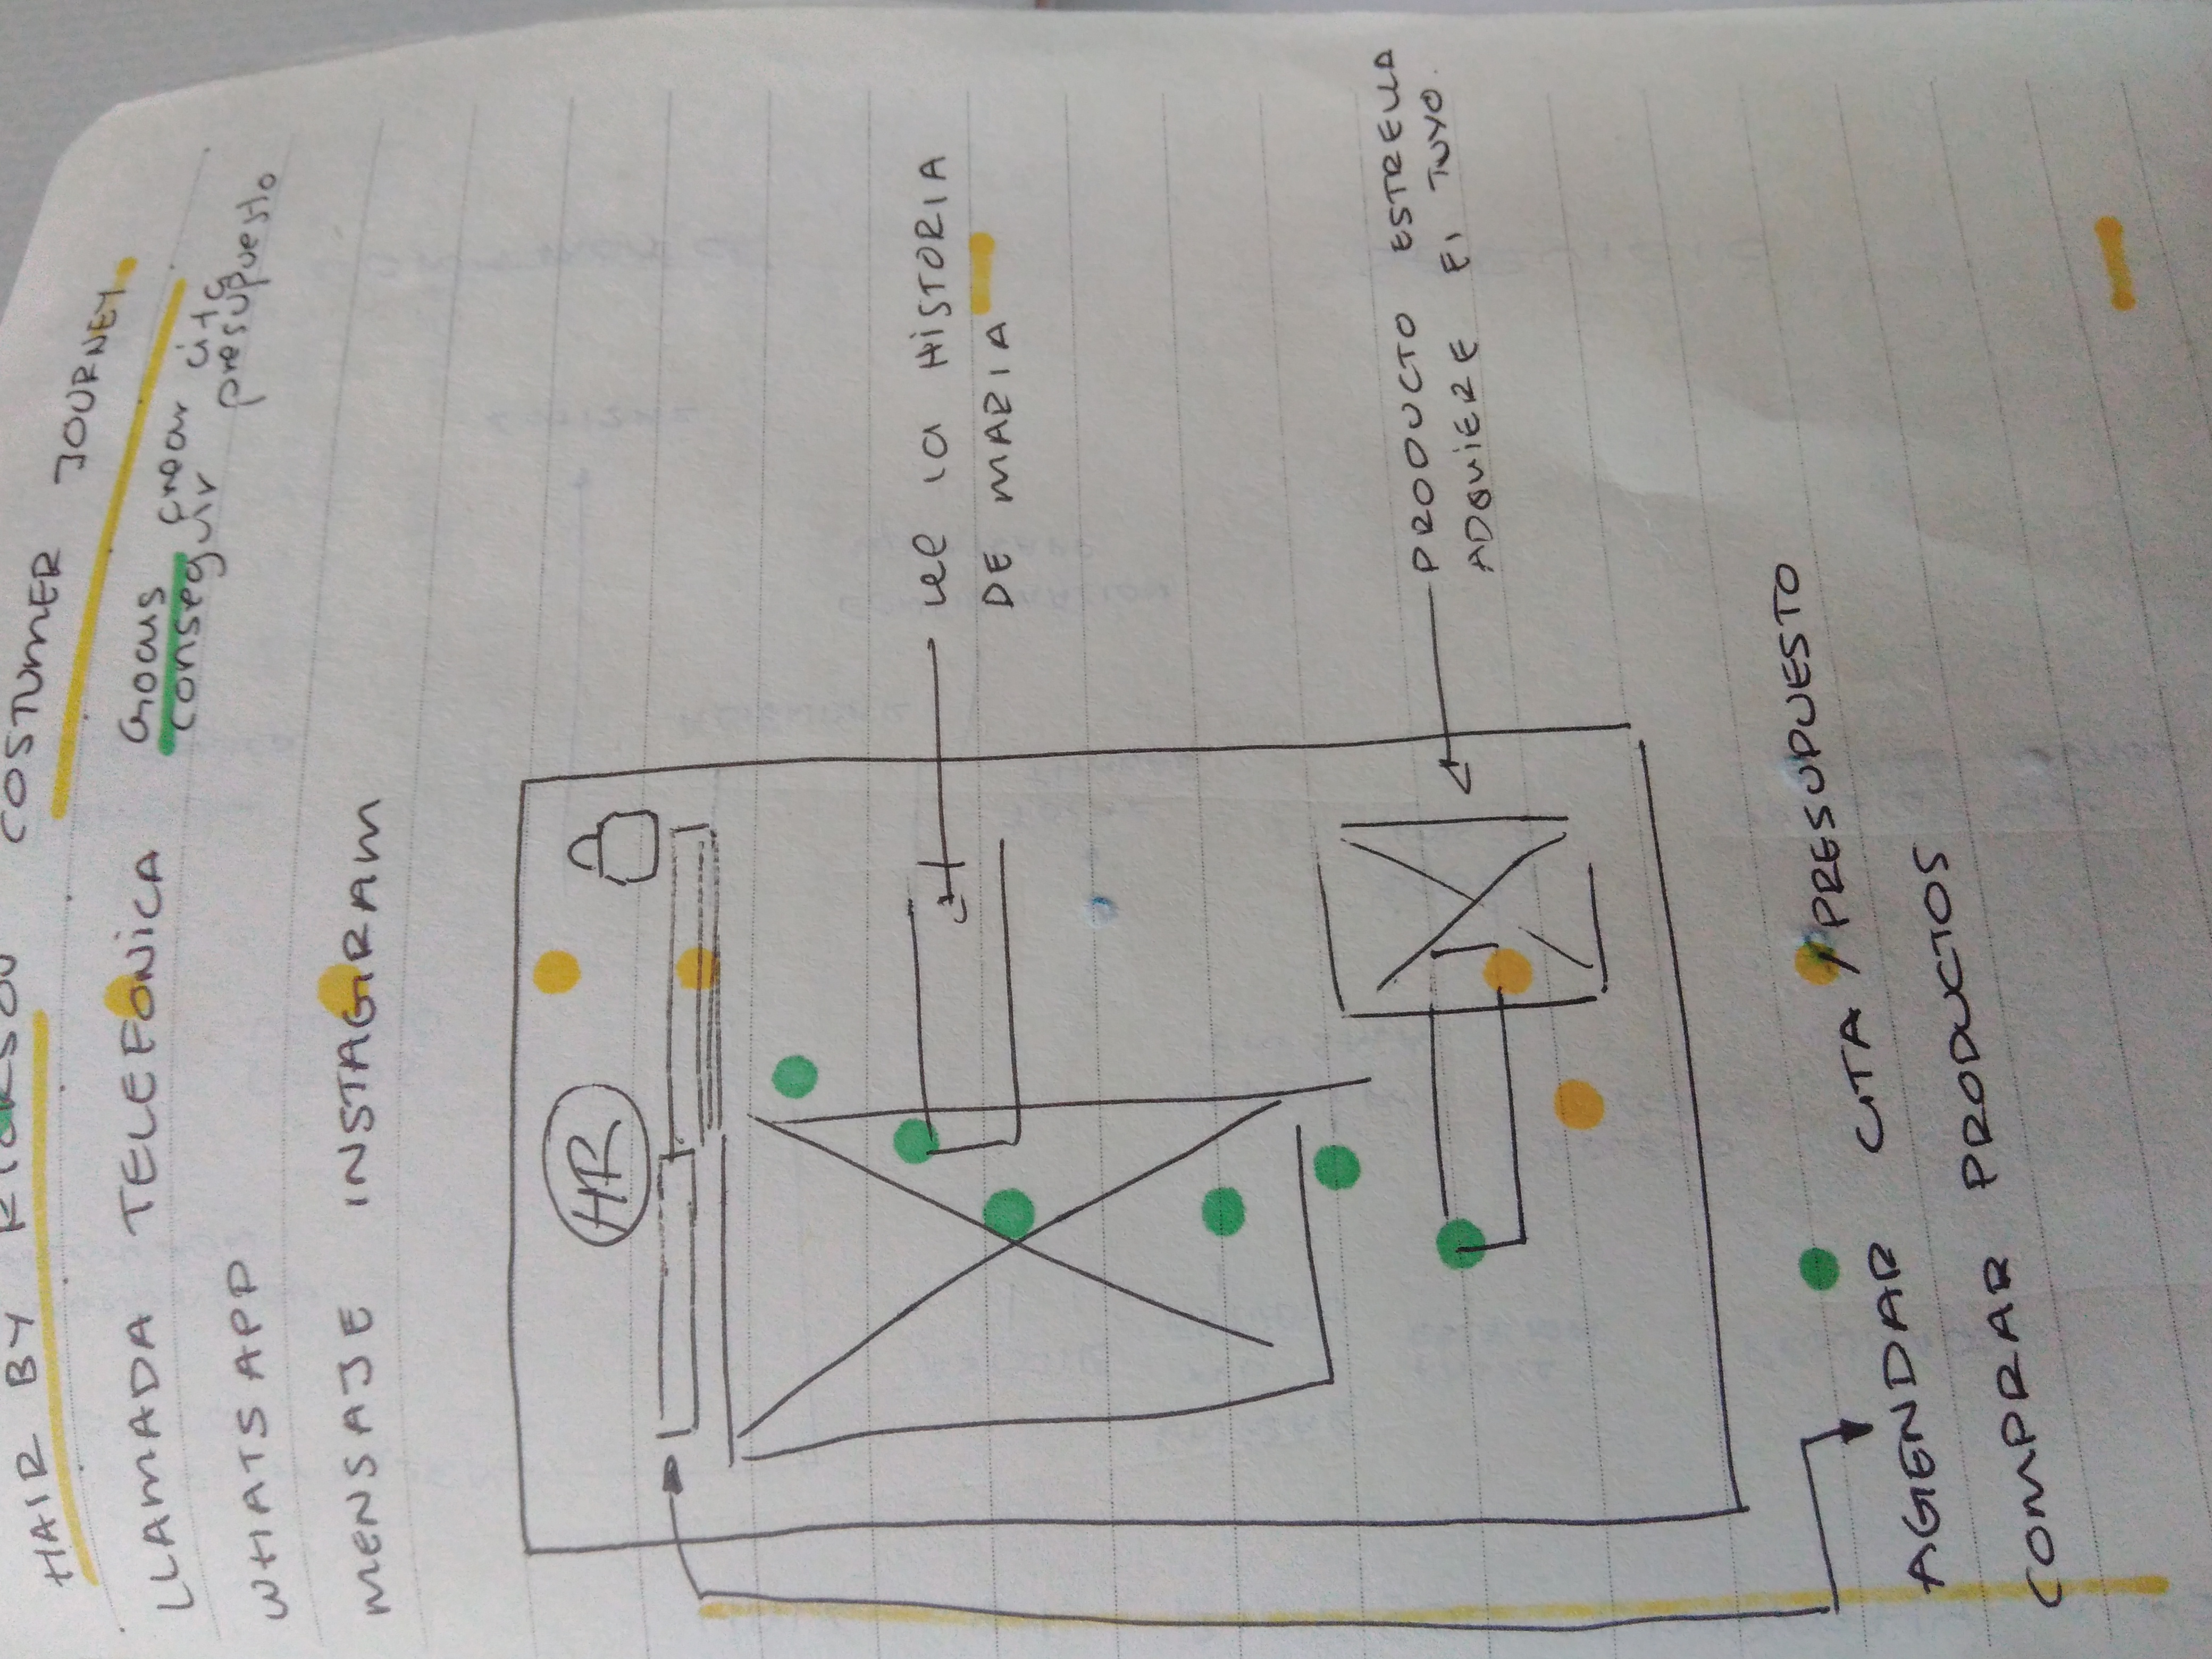 HAIR BY
COSTUMER JOURNEY
LLAMADA TELEFONICA
Goals crear cita
conseguir presupuesto
WHATSAPP
MENSAJE INSTAGRAM
HR
lee la HISTORIA
DE MARIA
PRODUCTO ESTRELLA
ADQUIERE El TUYO.
AGENDAR CITA / PRESUPUESTO
COMPRAR PRODUCTOS